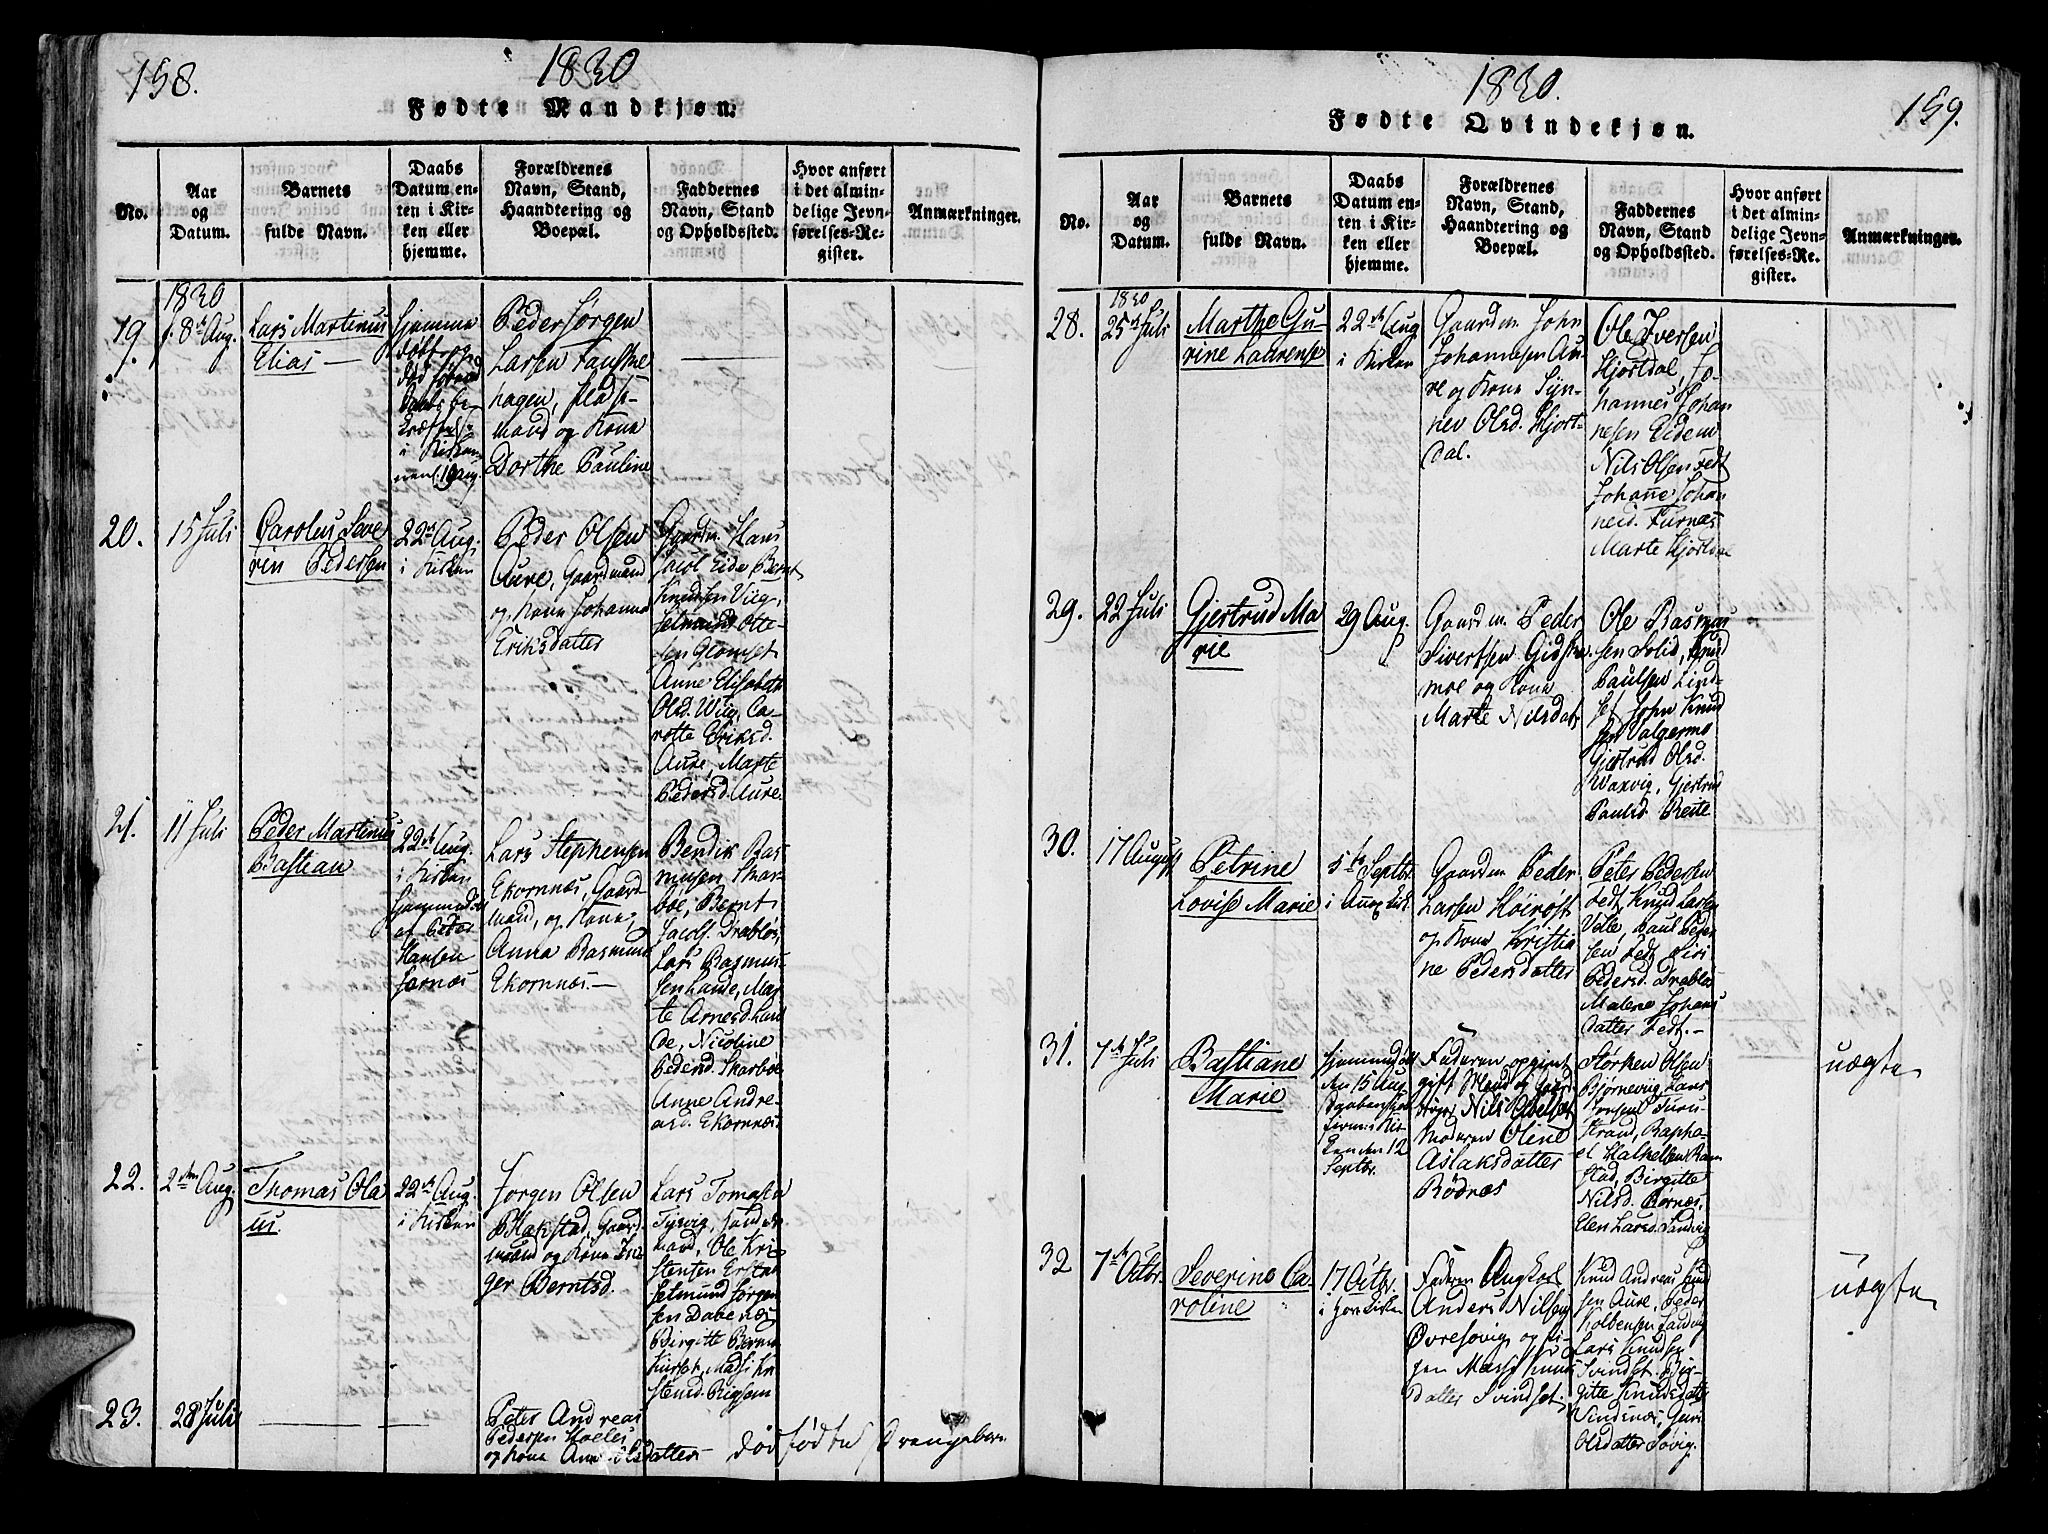 158.
1830
Fødte Mandkjøn.
No.
Aar
og
Datum.
Barnets
fulde Navn.
Daabs
Datum en-
ten i Kir-
ken eller
hjemme.
Forældrenes
Navn, Stand,
Haandtering og
Boepæl.
Faddernes
Navn, Stand
og Opholdssted.
Hvor anført
i det almin-
delige Jevn-
førelses-Re-
gister.
Anmærkninger.
19.
1830
8de Aug.
Lars Martinus
Elias
Hjemme
døbt og
død
i Kirken
19 Aug.
Peder Jørgen
Larsen Fauske
hagen, Plads-
mand og Kone
Dorthe Pauline
20.
15 Juli
Carolus Seve
rin Pedersen
22de Aug.
i Kirken
Peder Olsen
Aure, Gaardmand
og Kone Johanne
Eriksdatter
Gaardm. Hans
Jacob Eide Bernt
Knudsen Viig,
Selmund Otte-
sen Glomset
Anne Elisabeth
Olsd. Viig, Ca-
rotte Eriksd.
Aure, Marte
Pedersd. Aure.
21.
11 Juli
Peder Martinus
Bastian
22de Aug.
i Kirken
Hjemmedøbt
af Peder
Hansen
Lars Stephensen
Ekornnæs, Gaard-
mand, og Kone
Anna Rasmusd
Ekornnæs.
Bendik Ras-
musen Skar-
boe, Bernt
Jacobs. Drabløs,
Lars Rasmus-
sen Lande, Mar-
te Arnesd. Lan
de, Nicoline
Pedersd. Skarboe
Anne Andre-
asd. Ekornnæs
22.
2den Aug.
Thomas Ola
us.
22de Aug.
i Kirken
Jørgen Olsen
Blakstad, Gaard-
mand og Kone In-
ger Berntsd.
Lars Tomasen
mand, Ole Kri-
stensen
Selmund Jørgen
sen
Birgitte
23.
28 Juli
Peter Andreas
Pedersen
og Kone Anne Olsdatter
død fødte Drengebarn
159.
1830.
Fødte Qvindekjøn.
No.
Aar
og
Datum.
Barnets
fulde Navn.
Daabs
Datum en-
ten i Kir-
ken eller
hjemme.
Forældrenes
Navn, Stand,
Haandtering og
Boepæl.
Faddernes
Navn, Stand
og Opholdssted.
Hvor anført
i det almin-
delige Jevn-
førelses-Re-
gister.
Anmærkninger.
28.
1830
25de Juli
Marthe Gu
rine Laurense
22de Aug
i Kirken
Gaardm. John
Johannesen Au-
re og Kone Syn-
nev Olsd. Hjort-
dal.
Ole Iversen
Hjortdal, Jo-
hannes Johan
nesen Eidem
Nils Olsen Fedt
Johanne Johan
nesd. Furnæs
Marte Hjortdal
29.
22 Juli
Gjertrud Ma
rie
29 Aug.
Gaardm. Peder
Sivertsen Gidske
moe og Kone
Marte Nilsdatr
Ole Rasmus
sen Solid, Knud
Paulsen Lind-
set John Knud
sen Valgermo
Gjertrud Olsd.
Vaxvig, Gjertrud
Paulsd. Reite
30.
17 August
Petrine
Lovise Marie
5te Septbr.
i
Gaardm Peder
Larsen Høiröst
og Kone Kristia
ne Pedersdatter
Peter Pedersen
Fedt, Knud Larsen
Velle, Paul Peder
sen Fedt, Siri
Pedersd. Drabløs
Malene Johans
datter Fedt.
31.
7de Juli
Bastiane
Marie
Hjemmedøbt
den 15 Aug
i Kir-
ken den 12
Septbr.
Faderen opgivet
gift Mand og Gaard
Nils
Moderen Oline
Aslaksdatter
Rödnæs
Størker Olsen
Bjørnevig, Lars
strand, Rapha-
el
stad, Birgitte
Nilsd.
Elen Larsd. Sandvig
uægte
32
7de Octbr.
Severine Ca-
roline
17 Octbr.
i
Faderen Ungkarl
Anders Nilsen
Øvresøvig og Pi-
gen Massi Knuds
datter Svindset.
Knud Andreas Knud
sen Aure, Peder
Kolbensen Sandvig
Lars Knudsen
Svindset, Bir-
gitte Knudsdatter
Olsdatter Søvig.
uægte